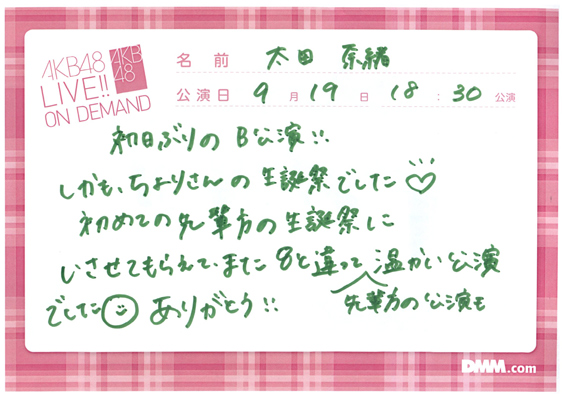 AKB48
LIVE!!
ON DEMAND
AKB
48
名前 太田 奈緒
公演日 9月19日 18:30公演
初日ぶりのB公演!!
しかも、ちよりさんの生誕祭でした♡
初めての先輩方の生誕祭に
いさせてもらえて、また8と違って温かい公演
先輩方の公演も
でした☺ ありがとう!!
DMM.com